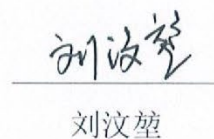 刘汶堃
刘汶堃